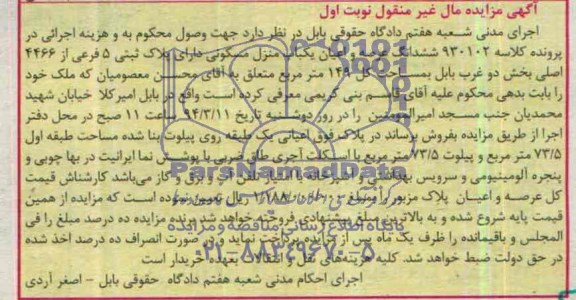 آگهی مزایده مال غیر منقول نوبت اول
اجرای مدنی شعبه هفتم دادگاه حقوقی بابل در نظر دارد جهت وصول محکوم به و هزینه اجرائی در
پرونده کلاسه ۹۳۰۱۰۲ ششدانگ اعیان یکباب منزل مسکونی دارای پلاک ثبتی ۵ فرعی از ۴۴۶۶
اصلی بخش دو غرب بابل بمساحت کل ۱۴۹ متر مربع متعلق به آقای محسن معصومیان که ملک خود
را بابت بدهی محکوم علیه آقای قاسم بنی کریمی معرفی کرده است واقع در بابل امیرکلا خیابان شهید
محمدیان جنب مسجد امیرالمومنین را در روز دوشنبه تاریخ ۹۴/۳/۱۱ ساعت ۱۱ صبح در محل دفتر
اجرا از طریق مزایده بفروش برساند در پلاک فوق اعیانی یک طبقه روی پیلوت بنا شده مساحت طبقه اول
۷۳/۵ متر مربع و پیلوت ۷۳/۵ متر مربع با اسکلت آجری طاق ضربی با پوشش نما ایرانیت در بها چوبی و
پنجره آلومینیومی و سرویس بهداشتی و برق و گاز می‌باشد کارشناس قیمت
کل عرصه و اعیان پلاک مزبور را مبلغ ریال تعیین نموده است که مزایده از همین
قیمت پایه شروع شده و به بالاترین مبلغ پیشنهادی فروخته خواهد شد برنده مزایده ده درصد مبلغ را فی
المجلس و باقیمانده را ظرف یک ماه پس از مزایده پرداخت نماید و در صورت انصراف ده درصد اخذ شده
در حق دولت ضبط خواهد شد. کلیه هزینه‌های نقل و انتقالات بعهده خریدار است
اجرای احکام مدنی شعبه هفتم دادگاه حقوقی بابل - اصغر آردی
ParsNamadData
پایگاه اطلاع رسانی مناقصه و مزایده
۰۲۱-۸۸۳۴۹۶۷۰-۵